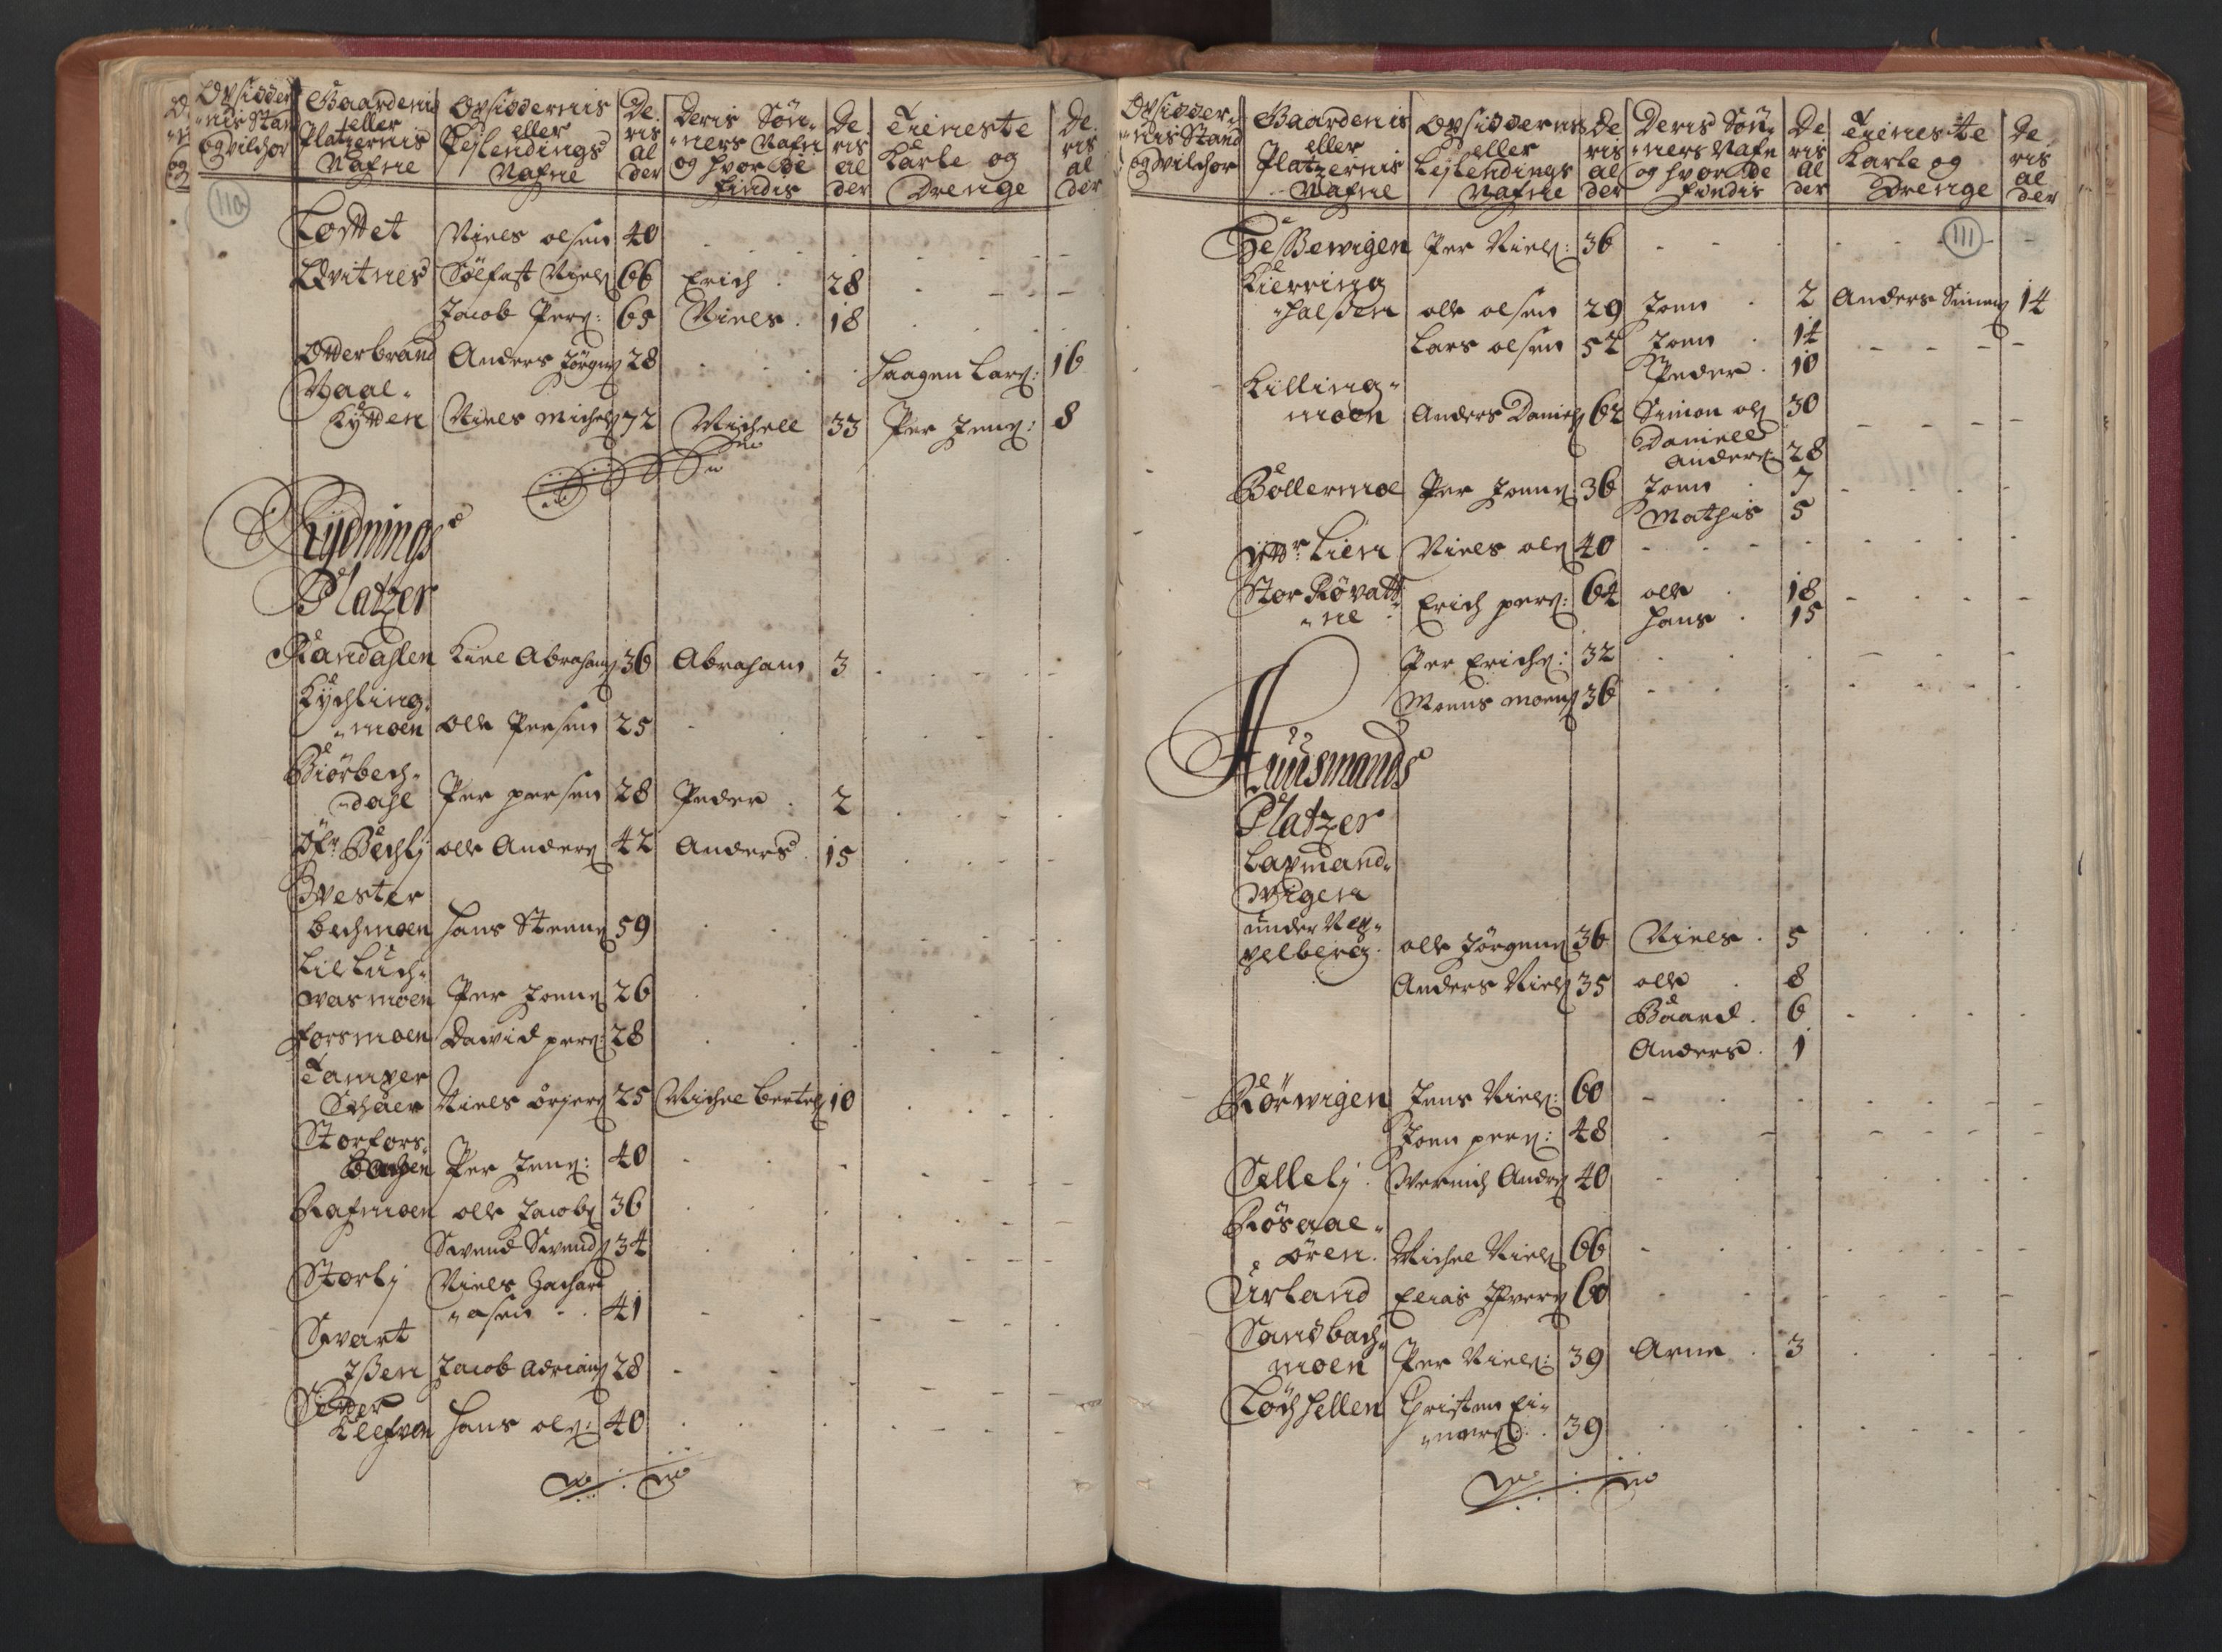 Opsidder
nis Stan
og vilchor
Gaardenis
eller
Platzernis
Nafne
Opsiddernis
eller
Leylendings
Nafne
De
ris
al
der
Deris Søn-
ners Nafn
og hvor de
findis
De
ris
al
der
Tieneste
Karle og
Drenge
De
ris
al
der
110
Toftet Niels olsen 40
Qvitnes Sølfast Niels 66 Erich 28
Jacob Pers: 65 Niels 18
Otterbrand Anders Jørgens 28 Haagen Lars: 16
Vaal-
Kytten Niels Michels 72 Michell 33 Per Jens: 8
Rydnings
Platzer
Randahlen Kiel Abrahams 36 Abraham 3
Kychling-
moen Olle Persen 25
Biörbech-
dahl Per persen 28 Peder 2
Øfr Bechlj olle Anders 42 Anders 15
Vester
bechmoen Hans Steens 59
Lil Luch-
vasmoen Per Joens 26
Forsmoen David pers: 28
Tamper
Schaer Niels 25 Michel Bertels 10
Storfors
Per Jens: 40
Rafmoen olle Jacobs 36
Svend Svends 34
Storlj Niels Zachari
asen 41
Svart
Jssen Jacob Adrians 28
Setter
Klefven Hans ols: 40
Opsidder-
nis Stand
og vilchor
Gaardenis
eller
Platzernis
Nafne
Opsiddernis
eller
Leylendings
Nafne
De
ris
al
der
Deris Søn-
ners Nafn
og hvor de
findis
De
ris
al
der
Tieneste
Karle og
Drenge
De
ris
al
der
111
Hessevigen Per Niels: 36
Kierring-
halsen olle olsen 29 Joen 2 Anders Simens 14
Lars olsen 52 Joen 14
Peder 10
Killing-
moen Anders Daniels 62 Simon ols 30
Daniell
Anders: 28
Böllermoe Per Joens 36 Joen 7
Mathis 5
Ytter Lien Niels ols 40
Stor Røvatt-
ne Erich pers: 64 olle 18
Hans 15
Per Erichs: 32
Monns Mons 36
Huusmands
Platzer
Lapmand-
vigen
under Nep-
pelberg olle Jørgens 36 Niels 5
Anders Niels 35 olle 8
Baard 6
Anders 1
Rörvigen Jens Niels: 60
Joen pers: 48
Sellelj Vernich Anders 40
Røsaae-
øren Michel Niels 66
Urland Elias Jvers 60
Sandbach-
moen Per Niels: 39 Arne 3
Töchhellen Christen Ei-
ners: 39